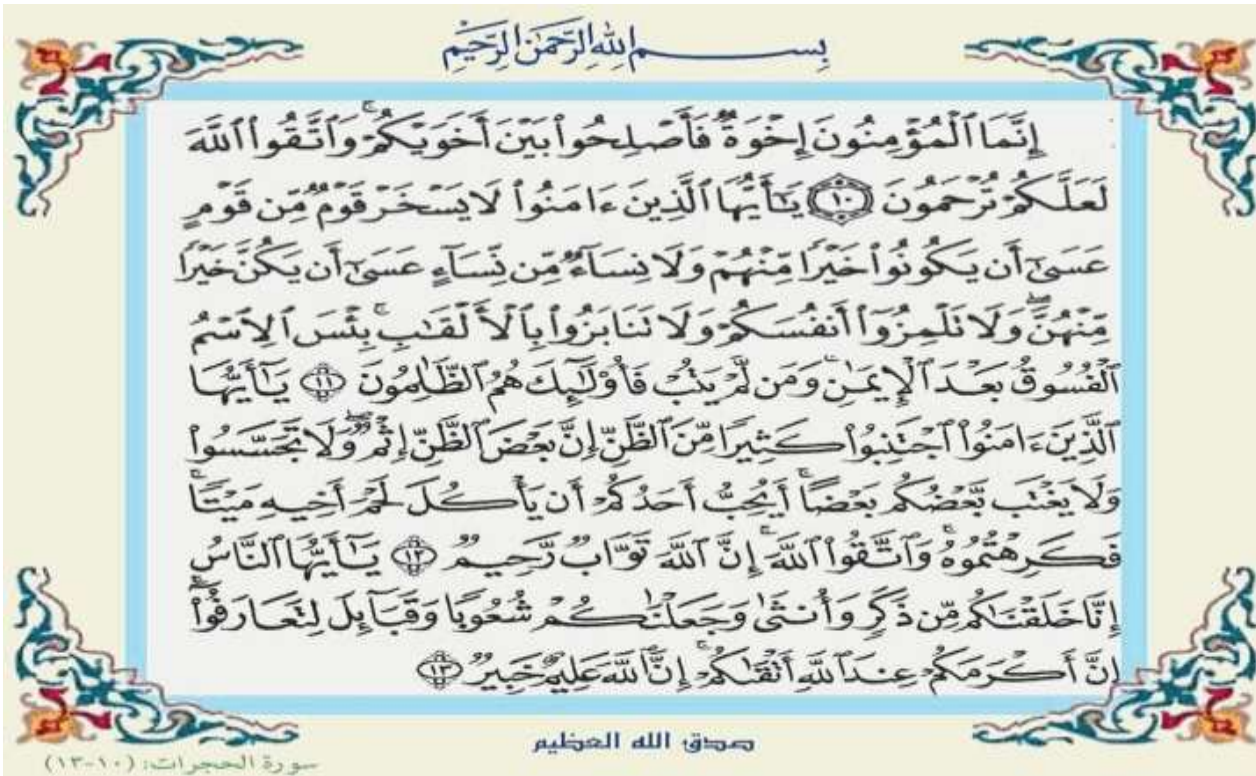 بِسْمِ اللَّهِ الرَّحْمَٰنِ الرَّحِيمِ
إِنَّمَا ٱلْمُؤْمِنُونَ إِخْوَةٌ فَأَصْلِحُوا۟ بَيْنَ أَخَوَيْكُمْ ۚ وَٱتَّقُوا۟ ٱللَّهَ
لَعَلَّكُمْ تُرْحَمُونَ ﴿١٠﴾ يَـٰٓأَيُّهَا ٱلَّذِينَ ءَامَنُوا۟ لَا يَسْخَرْ قَوْمٌ مِّن قَوْمٍ
عَسَىٰٓ أَن يَكُونُوا۟ خَيْرًا مِّنْهُمْ وَلَا نِسَآءٌ مِّن نِّسَآءٍ عَسَىٰٓ أَن يَكُنَّ خَيْرًا
مِّنْهُنَّ ۖ وَلَا تَلْمِزُوٓا۟ أَنفُسَكُمْ وَلَا تَنَابَزُوا۟ بِٱلْأَلْقَـٰبِ ۖ بِئْسَ ٱلِٱسْمُ
ٱلْفُسُوقُ بَعْدَ ٱلْإِيمَـٰنِ ۚ وَمَن لَّمْ يَتُبْ فَأُو۟لَـٰٓئِكَ هُمُ ٱلظَّـٰلِمُونَ ﴿١١﴾ يَـٰٓأَيُّهَا
ٱلَّذِينَ ءَامَنُوا۟ ٱجْتَنِبُوا۟ كَثِيرًا مِّنَ ٱلظَّنِّ إِنَّ بَعْضَ ٱلظَّنِّ إِثْمٌ ۖ وَلَا تَجَسَّسُوا۟
وَلَا يَغْتَب بَّعْضُكُم بَعْضًا ۚ أَيُحِبُّ أَحَدُكُمْ أَن يَأْكُلَ لَحْمَ أَخِيهِ مَيْتًا
فَكَرِهْتُمُوهُ ۚ وَٱتَّقُوا۟ ٱللَّهَ ۚ إِنَّ ٱللَّهَ تَوَّابٌ رَّحِيمٌ ﴿١٢﴾ يَـٰٓأَيُّهَا ٱلنَّاسُ
إِنَّا خَلَقْنَـٰكُم مِّن ذَكَرٍ وَأُنثَىٰ وَجَعَلْنَـٰكُمْ شُعُوبًا وَقَبَآئِلَ لِتَعَارَفُوٓا۟ ۚ
إِنَّ أَكْرَمَكُمْ عِندَ ٱللَّهِ أَتْقَىٰكُمْ ۚ إِنَّ ٱللَّهَ عَلِيمٌ خَبِيرٌ ﴿١٣﴾
صدق الله العظيم
سورة الحجرات: (١٠-١٣)